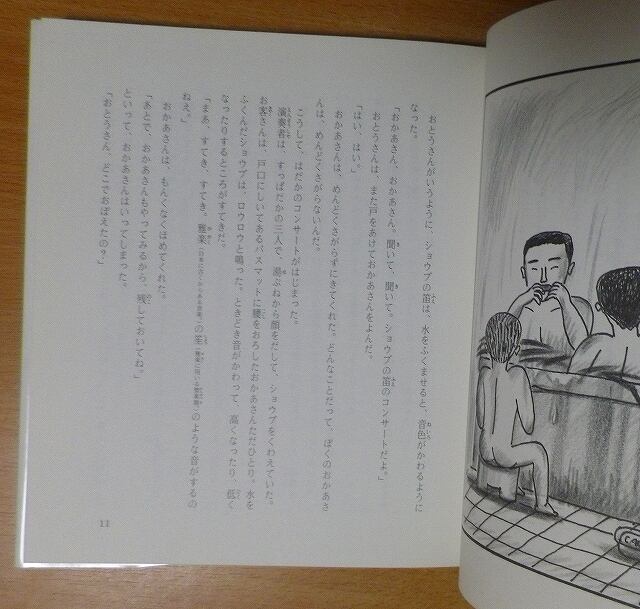 おとうさんがいうように、ショウブの笛は、水をふくませると、音色がかわるように
なった。
「おかあさん、おかあさん。聞いて、聞いて。ショウブの笛のコンサートだよ。」
おとうさんは、また戸をあけておかあさんをよんだ。
「はい、はい。」
おかあさんは、めんどくさがらずにきてくれた。どんなことだって、ぼくのおかあさ
んは、めんどくさがらないんだ。
こうして、はだかのコンサートがはじまった。
演奏者は、すっぱだかの三人で、湯ぶねから顔をだして、ショウブをくわえていた。
お客さんは、戸口にしいてあるバスマットに腰をおろしたおかあさんただひとり。水を
ふくんだショウブは、ロウロウと鳴った。ときどき音がかわって、高くなったり、低く
なったりするところがすてきだ。
「まあ、すてき、すてき。雅楽(日本に古くからある音楽)の笙(雅楽に用いる管楽器)のような音がするの
ねえ。」
おかあさんは、もんくなくほめてくれた。
「あとで、おかあさんもやってみるから、残しておいてね。」
といって、おかあさんはいってしまった。
「おとうさん、どこでおぼえたの？」
11